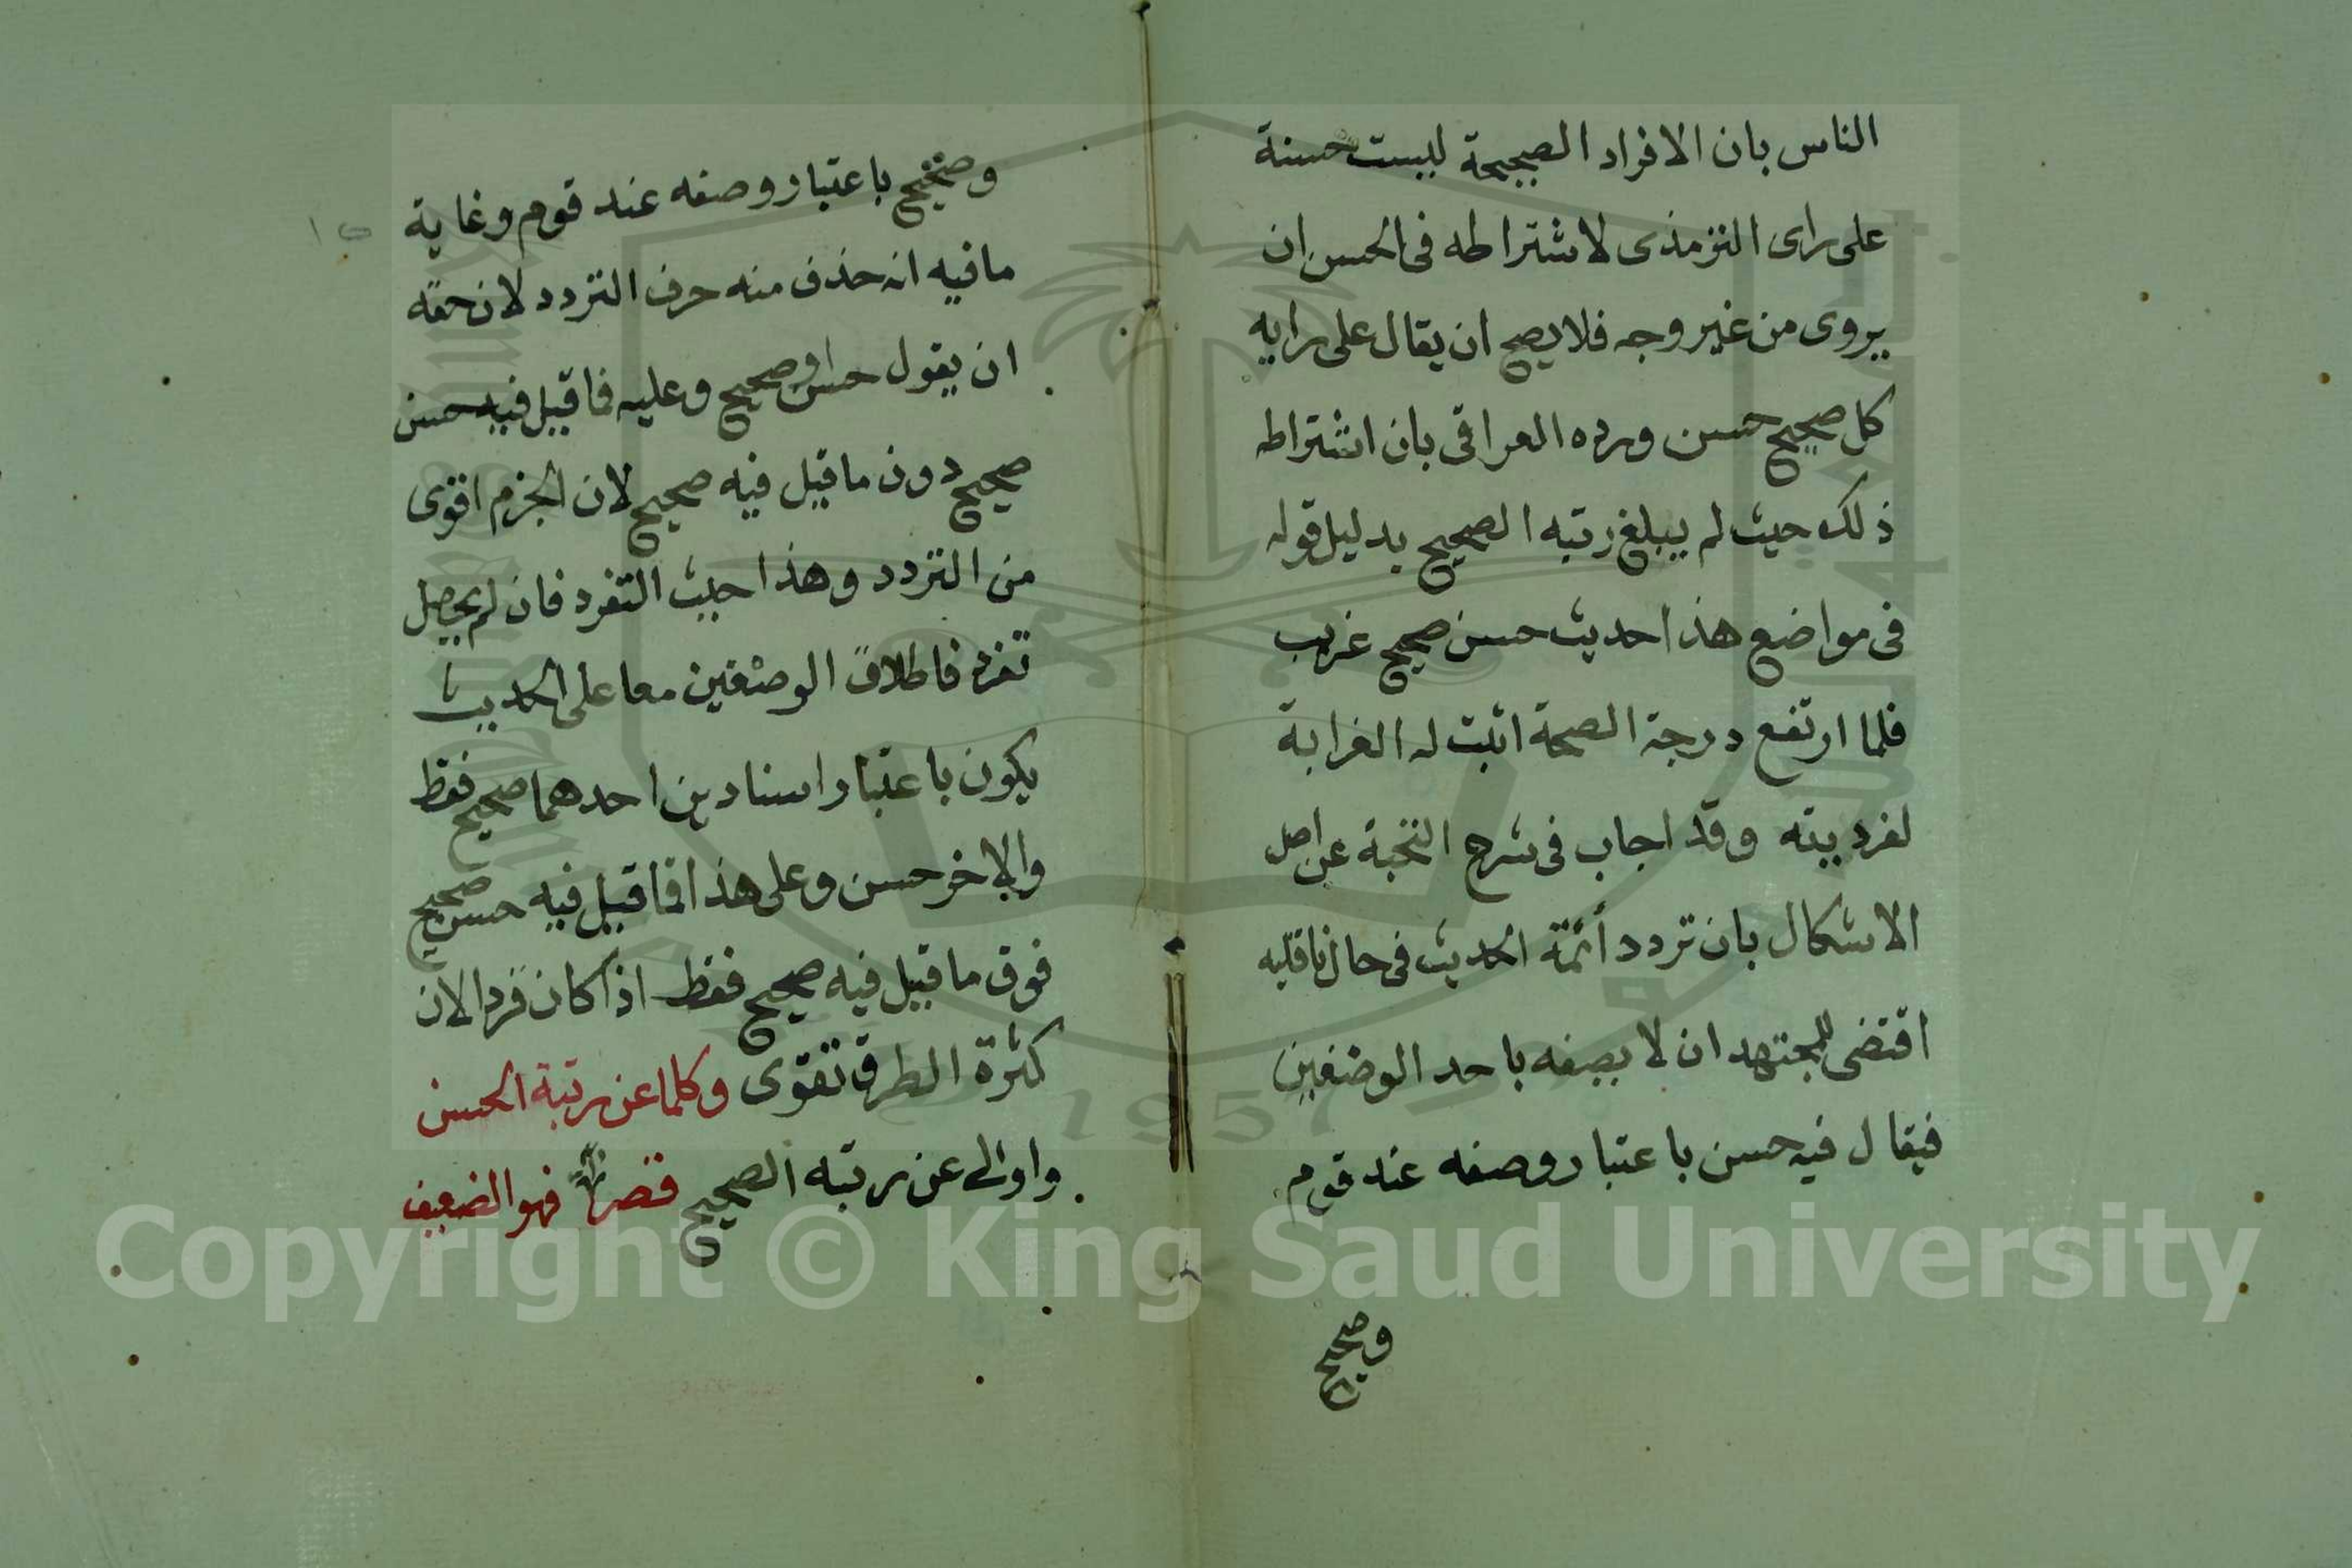 الناس بان الافراد الصحيحة ليست حسنة
على راى الترمذى لاشتراطه فى الحسن ان
يروى من غير وجه فلا يصح ان يقال على رايه
كل صحيح حسن ورده العراقى بان اشتراطه
ذلك حيث لم يبلغ رتبه الصحيح بدليل قوله
فى مواضع هذا حديث حسن صحيح غريب
فلما ارتفع درجة الصحة اثبت له الغرابة
لفرديته وقد اجاب فى شرح النخبة عن اصل
الاشكال بان تردد أئمة الحديث فى حال ناقليه
اقتضى للمجتهد ان لا يصفه باحد الوصفين
فيقال فيه حسن باعتبار وصفه عند قوم
وصحيح
وصحيح باعتبار وصفه عند قوم وغاية
مافيه انه حذف منه حرف التردد لان حقه
ان يقول حسن او صحيح وعليه فما قيل فيه حسن
صحيح دون ما قيل فيه صحيح لان الجزم اقوى
من التردد وهذا حيث التفرد فان لم يحصل
تفرد فاطلاق الوصفين معا على الحديث
يكون باعتبار اسنادين احدهما صحيح فقط
والاخر حسن وعلى هذا فما قيل فيه حسن صحيح
فوق ما قيل فيه صحيح فقط اذا كان فردا لان
كثرة الطرق تقوى وكلما عن رتبة الحسن
واولى عن رتبه الصحيح قصر فهو الضعيف
١٥
Copyright © King Saud University
1957